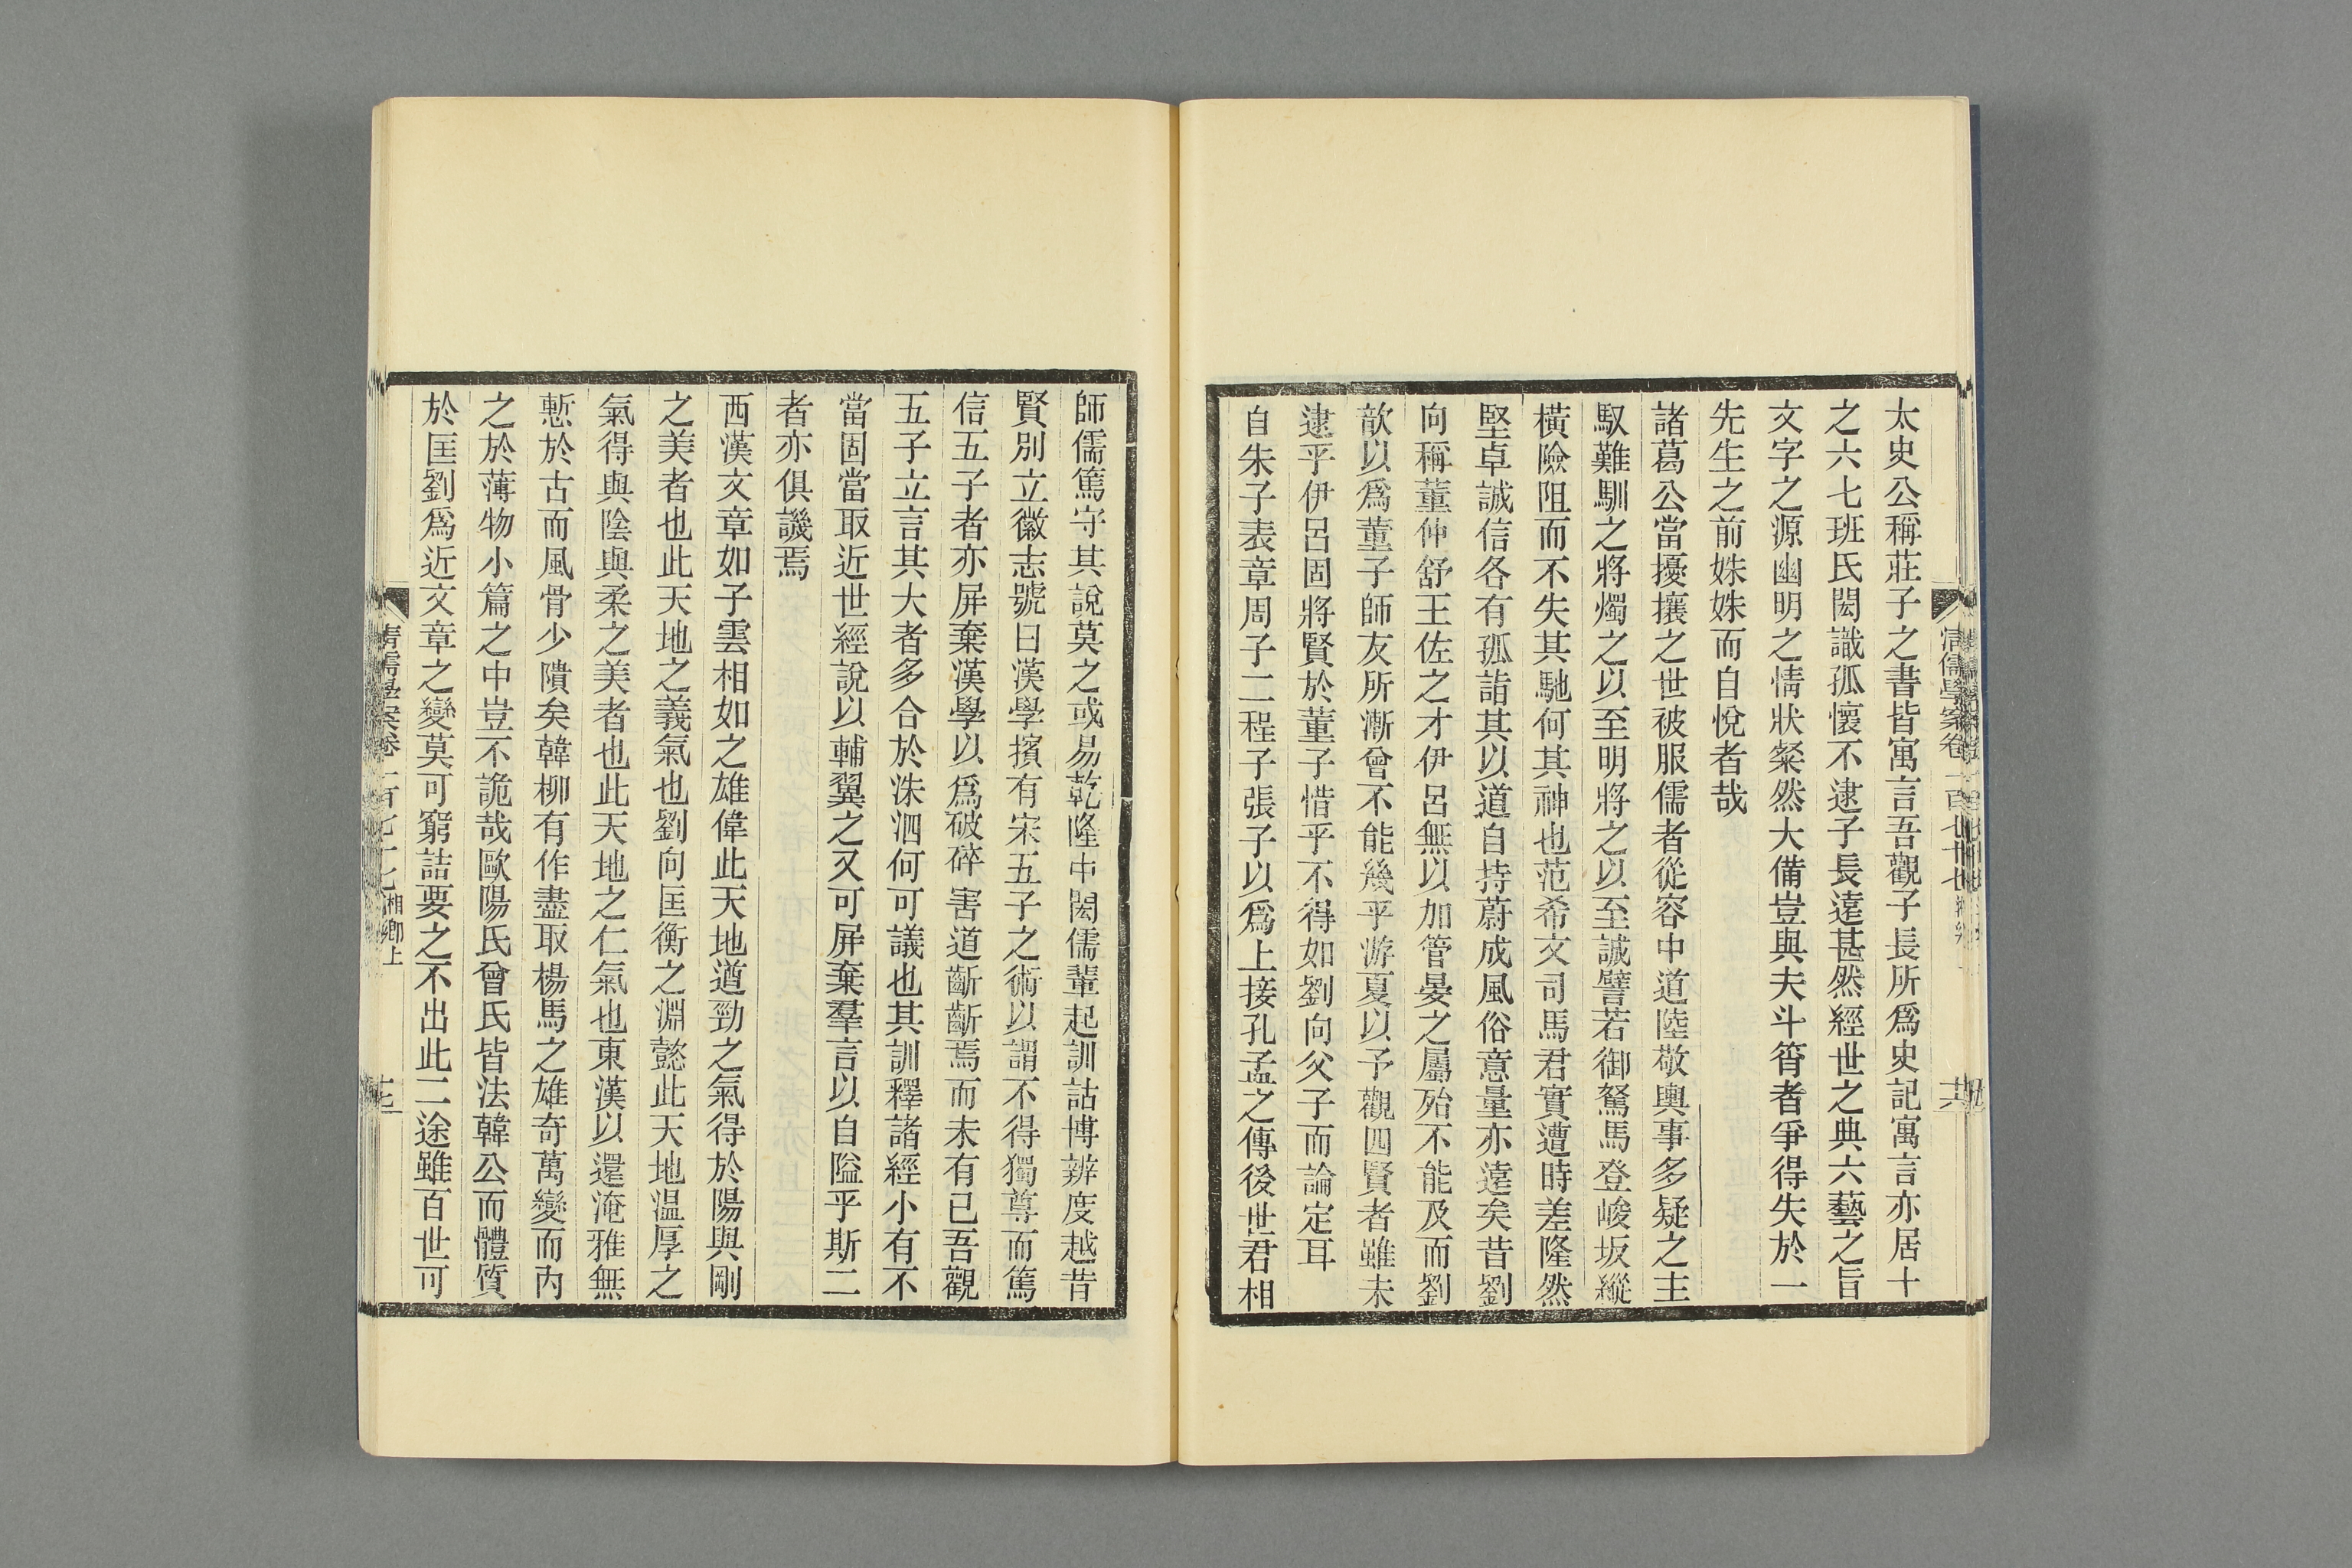 太史公稱莊子之書皆寓言吾觀子長所爲史記寓言亦居十
之六七班氏閎識孤懷不逮子長遠甚然經世之典六藝之旨
文字之源幽明之情狀粲然大備豈與夫斗筲者爭得失於一
先生之前姝姝而自悅者哉
諸葛公當擾攘之世被服儒者從容中道陸敬輿事多疑之主
馭難馴之將燭之以至明將之以至誠譬若御駑馬登峻坂縱
橫險阻而不失其馳何其神也范希文司馬君實遭時差隆然
堅卓誠信各有孤詣其以道自持蔚成風俗意量亦遠矣昔劉
向稱董仲舒王佐之才伊呂無以加管晏之屬殆不能及而劉
歆以爲董子師友所漸曾不能幾乎游夏以予觀四賢者雖未
逮乎伊呂固將賢於董子惜乎不得如劉向父子而論定耳
自朱子表章周子二程子張子以爲上接孔孟之傳後世君相
師儒篤守其說莫之或易乾隆中閎儒輩起訓詁博辨度越昔
賢別立徽志號曰漢學擯有宋五子之術以謂不得獨尊而篤
信五子者亦屏棄漢學以爲破碎害道齗齗焉而未有已吾觀
五子立言其大者多合於洙泗何可議也其訓釋諸經小有不
當固當取近世經說以輔翼之又可屏棄羣言以自隘乎斯二
者亦俱譏焉
西漢文章如子雲相如之雄偉此天地遒勁之氣得於陽與剛
之美者也此天地之義氣也劉向匡衡之淵懿此天地溫厚之
氣得與陰與柔之美者也此天地之仁氣也東漢以還淹雅無
慙於古而風骨少隤矣韓柳有作盡取楊馬之雄奇萬變而內
之於薄物小篇之中豈不詭哉歐陽氏曾氏皆法韓公而體質
於匡劉爲近文章之變莫可窮詰要之不出此二途雖百世可
清儒學案卷一百七十七 湘鄉上